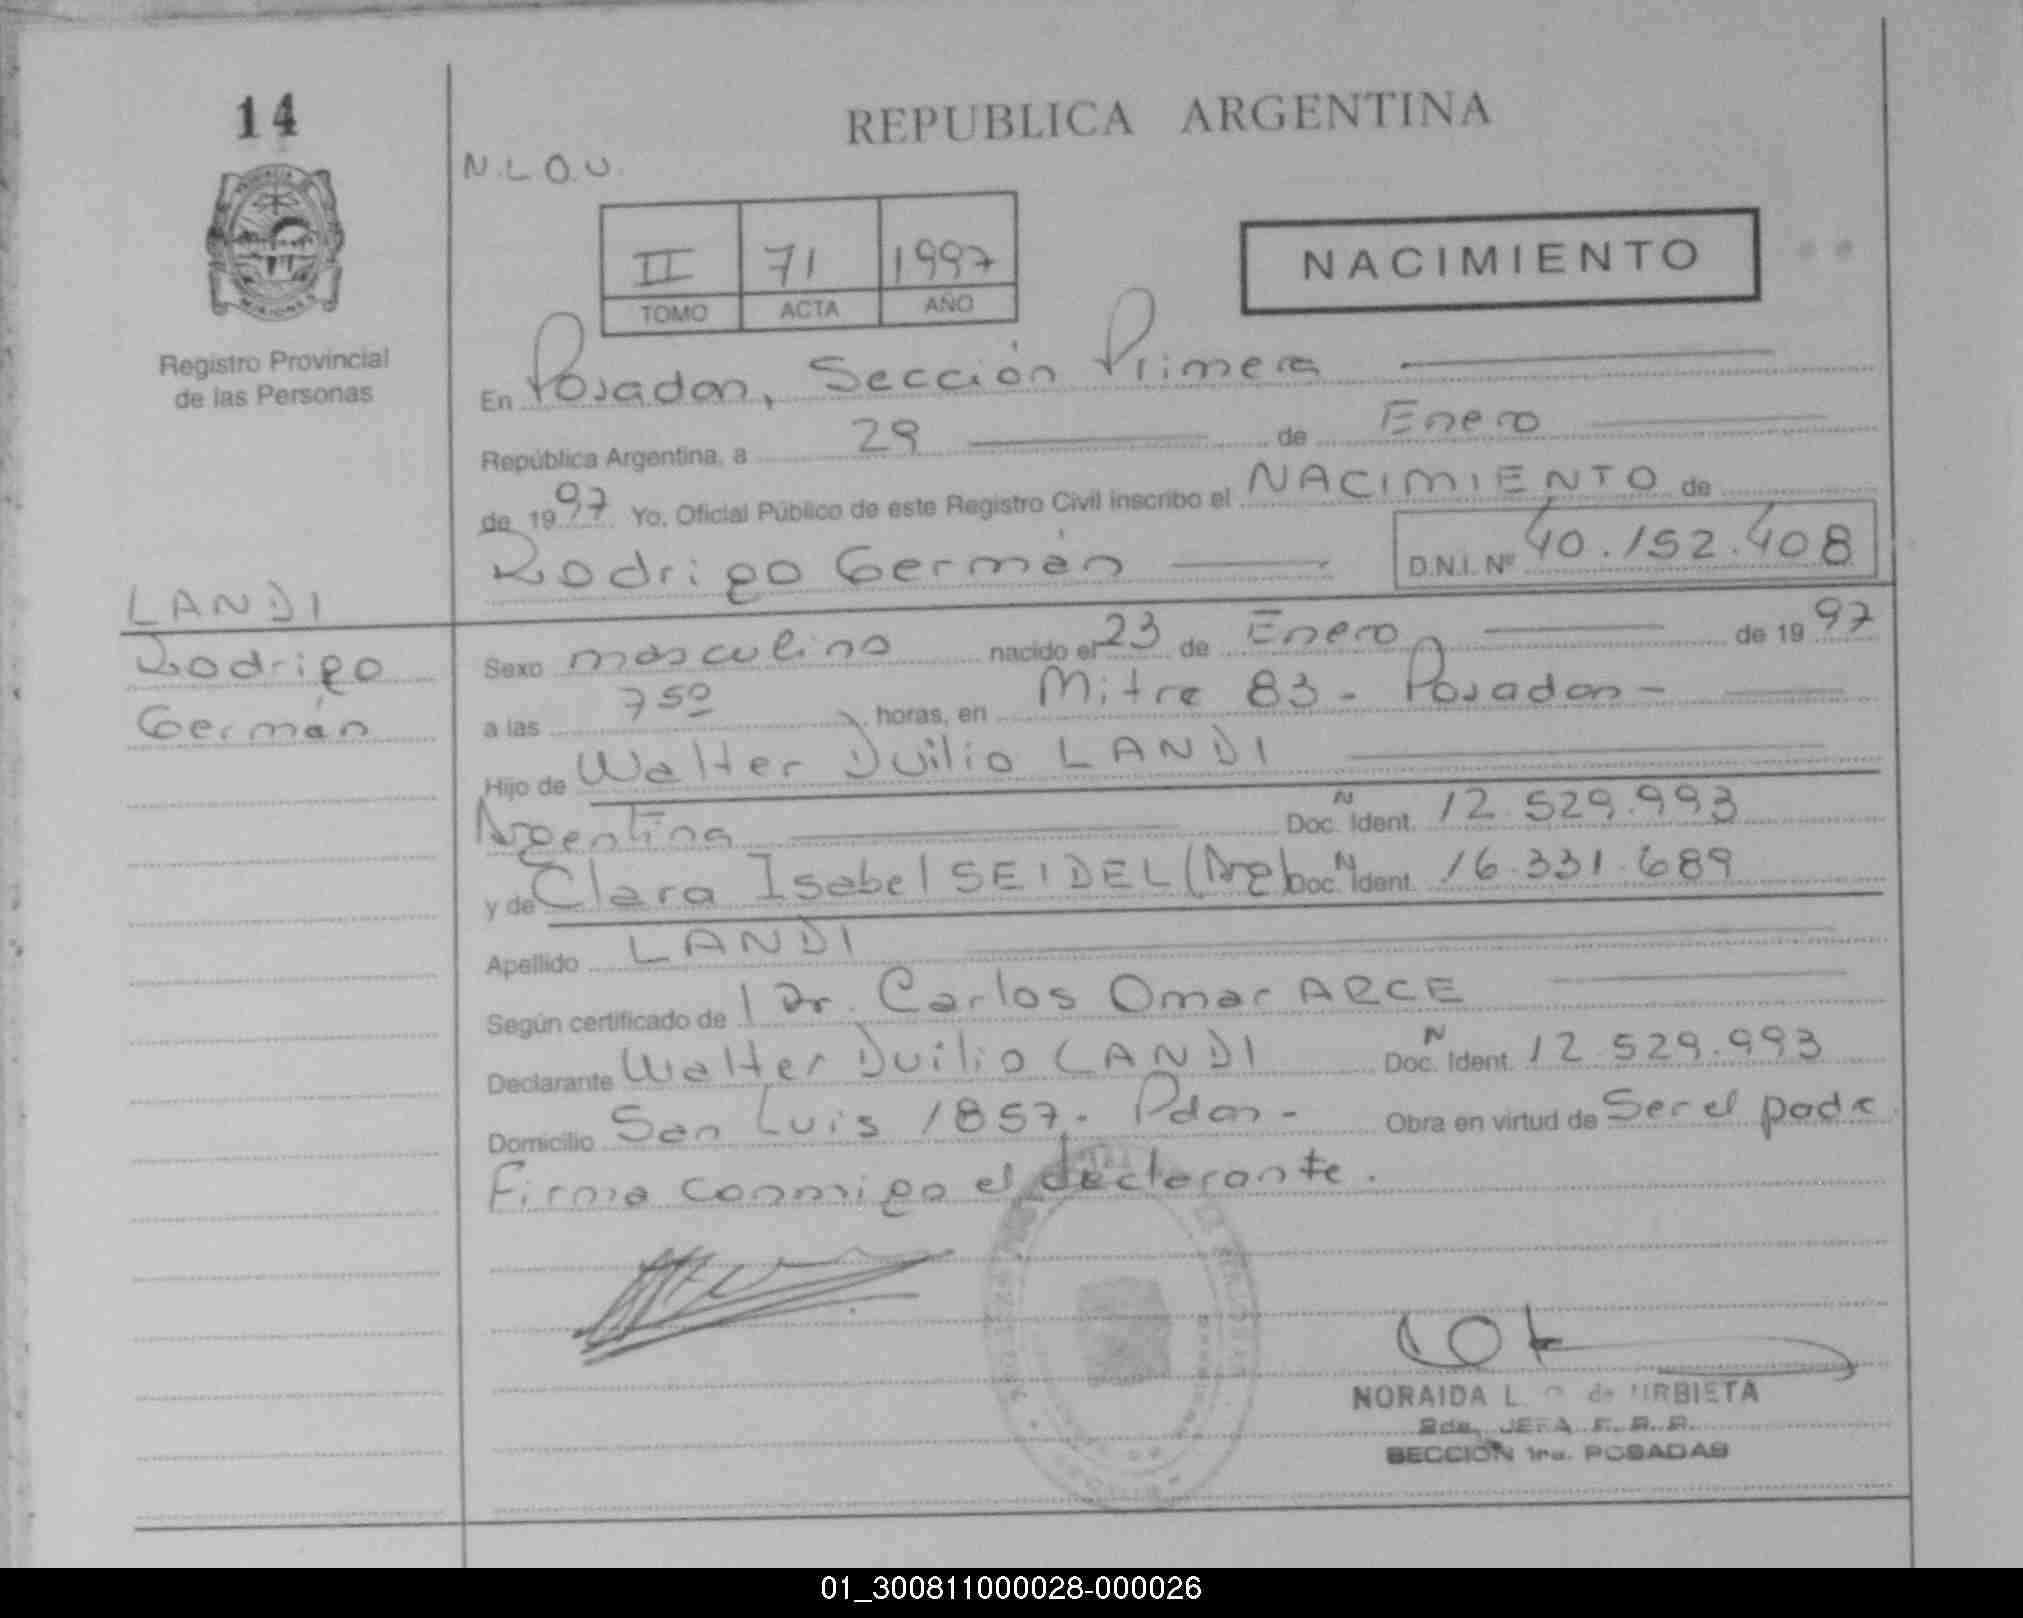 14
REPUBLICA ARGENTINA
N.L.O.U.
II 71 1997
TOMO ACTA AÑO
NACIMIENTO
Registro Provincial
de las Personas
En Posadas, Sección Primera
República Argentina, a 29 de Enero
de 1997 Yo, Oficial Público de este Registro Civil inscribo el NACIMIENTO de
Rodrigo Germán D.N.I. Nº 40.152.408
LANDI
Rodrigo
Germán
Sexo masculino nacido el 23 de Enero de 1997
a las 7 50 horas, en Mitre 83 - Posadas -
Hijo de Walter Duilio LANDI
Argentina Doc. N Ident. 12.529.993
y de Clara Isabel SEIDEL (Arg) Doc. N Ident. 16.331.689
Apellido LANDI
Según certificado de l Dr. Carlos Omar ARCE
Declarante Walter Duilio LANDI Doc. N Ident. 12.529.993
Domicilio San Luis 1857 - Pdas - Obra en virtud de Ser el padre.
Firma conmigo el declarante.
NORAIDA L. de URBIETA
JEFA
SECCION 1ra. POSADAS
01_300811000028-000026